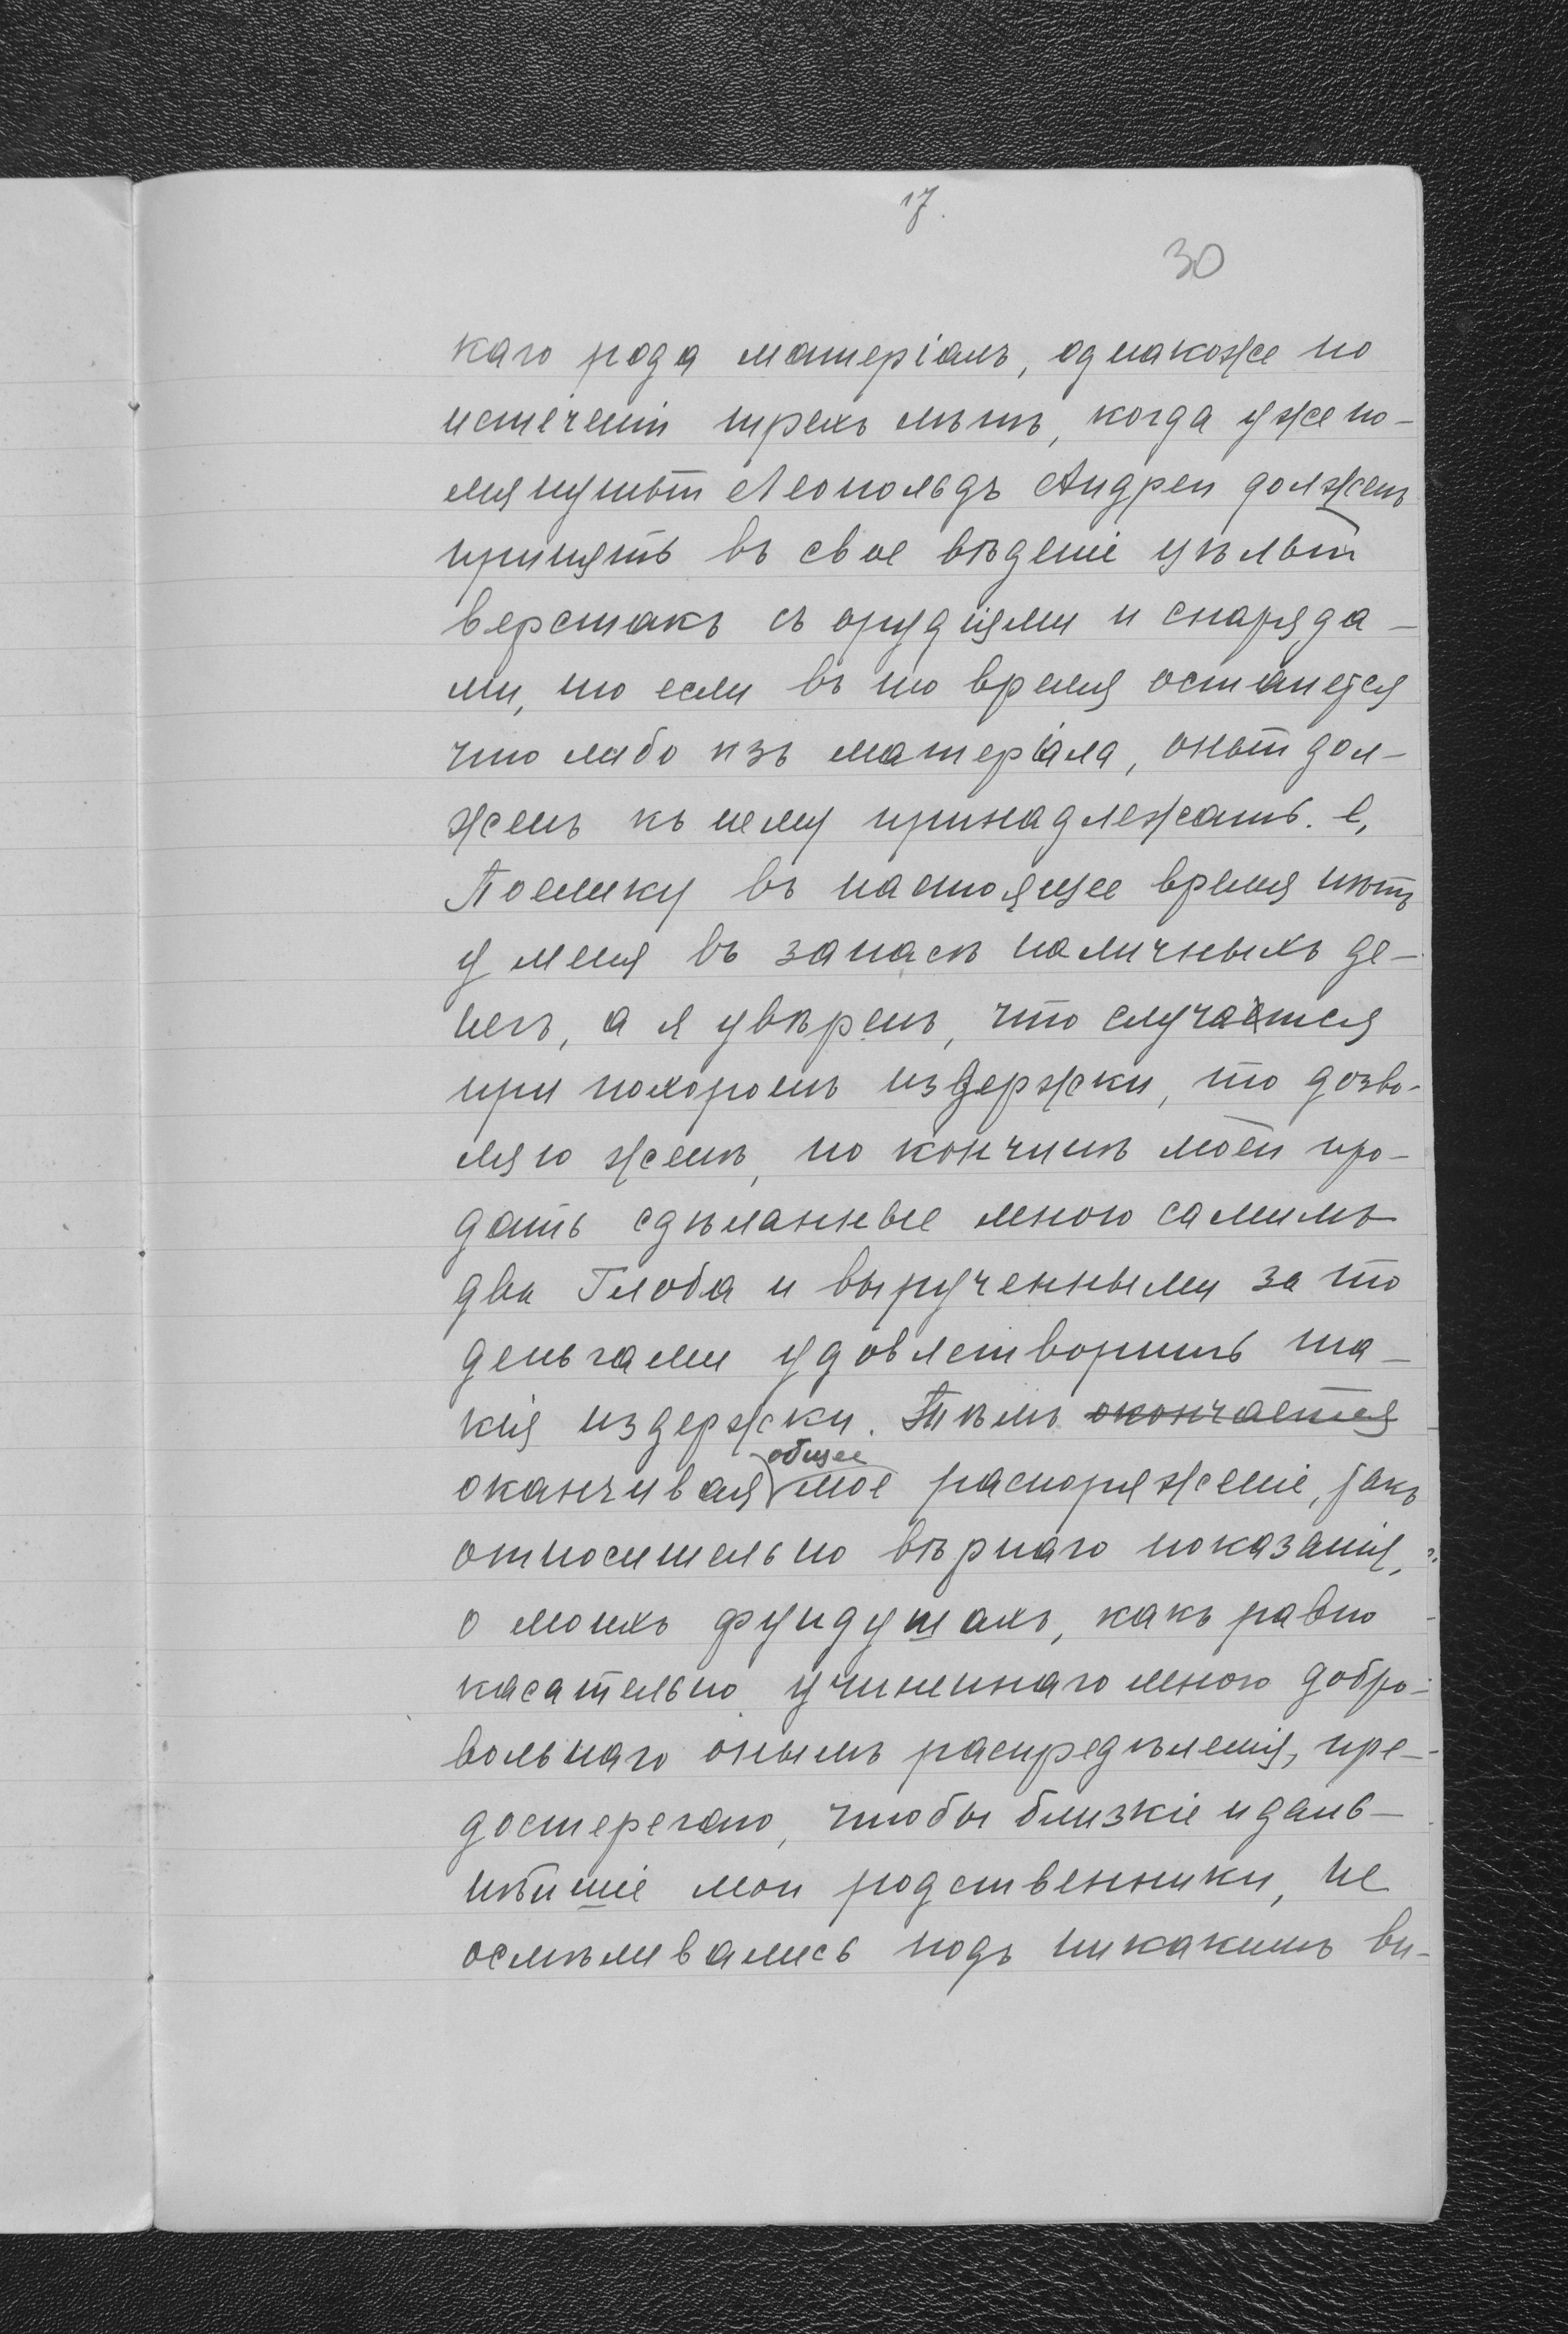 17.
30
каго рода матеріалъ, однакоже по
истеченіи трехъ лѣтъ, когда уже по-
мянутый Леопольдъ Андрей долженъ
принять въ свое вѣденіе цѣлый
верстакъ съ орудіями и снаряда-
ми, то если въ то время останется
что либо изъ матеріала, оный дол-
женъ къ нему принадлежать. е,
Поелику въ настоящее время нѣтъ
у меня въ запасѣ наличныхъ де-
негъ, а я увѣренъ, что случатся
при похоронѣ издержки, то дозво-
ляю женѣ, по кончинѣ моей про-
дать сдѣланные мною самимъ
два Глоба и вырученными за то
деньгами удовлетворить та-
кія издержки. Тѣмъ окончается
общее
оканчивая мое распоряженіе, такъ
относительно вѣрнаго показанія,
о моихъ фундушахъ, какъ равно
касательно учиненнаго мною добро-
вольнаго онымъ распредѣленія, пре-
достерегаю, чтобы близкіе и даль-
нѣйшіе мои родственники, не
осмѣливались подъ никакимъ ви-